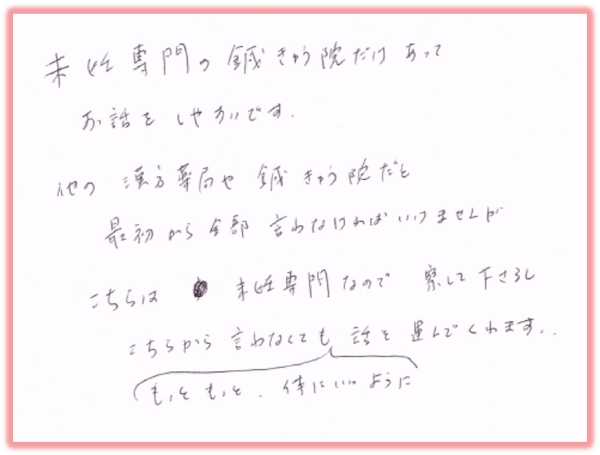 未妊専門の鍼きゅう院だけあって
お話をしやすいです.
他の漢方薬局や鍼きゅう院だと
最初から全部言わなければいけませんが
こちらは 未妊専門なので 察して下さるし
こちらから言わなくても 話を運んでくれます..
もっともっと、体にいいように